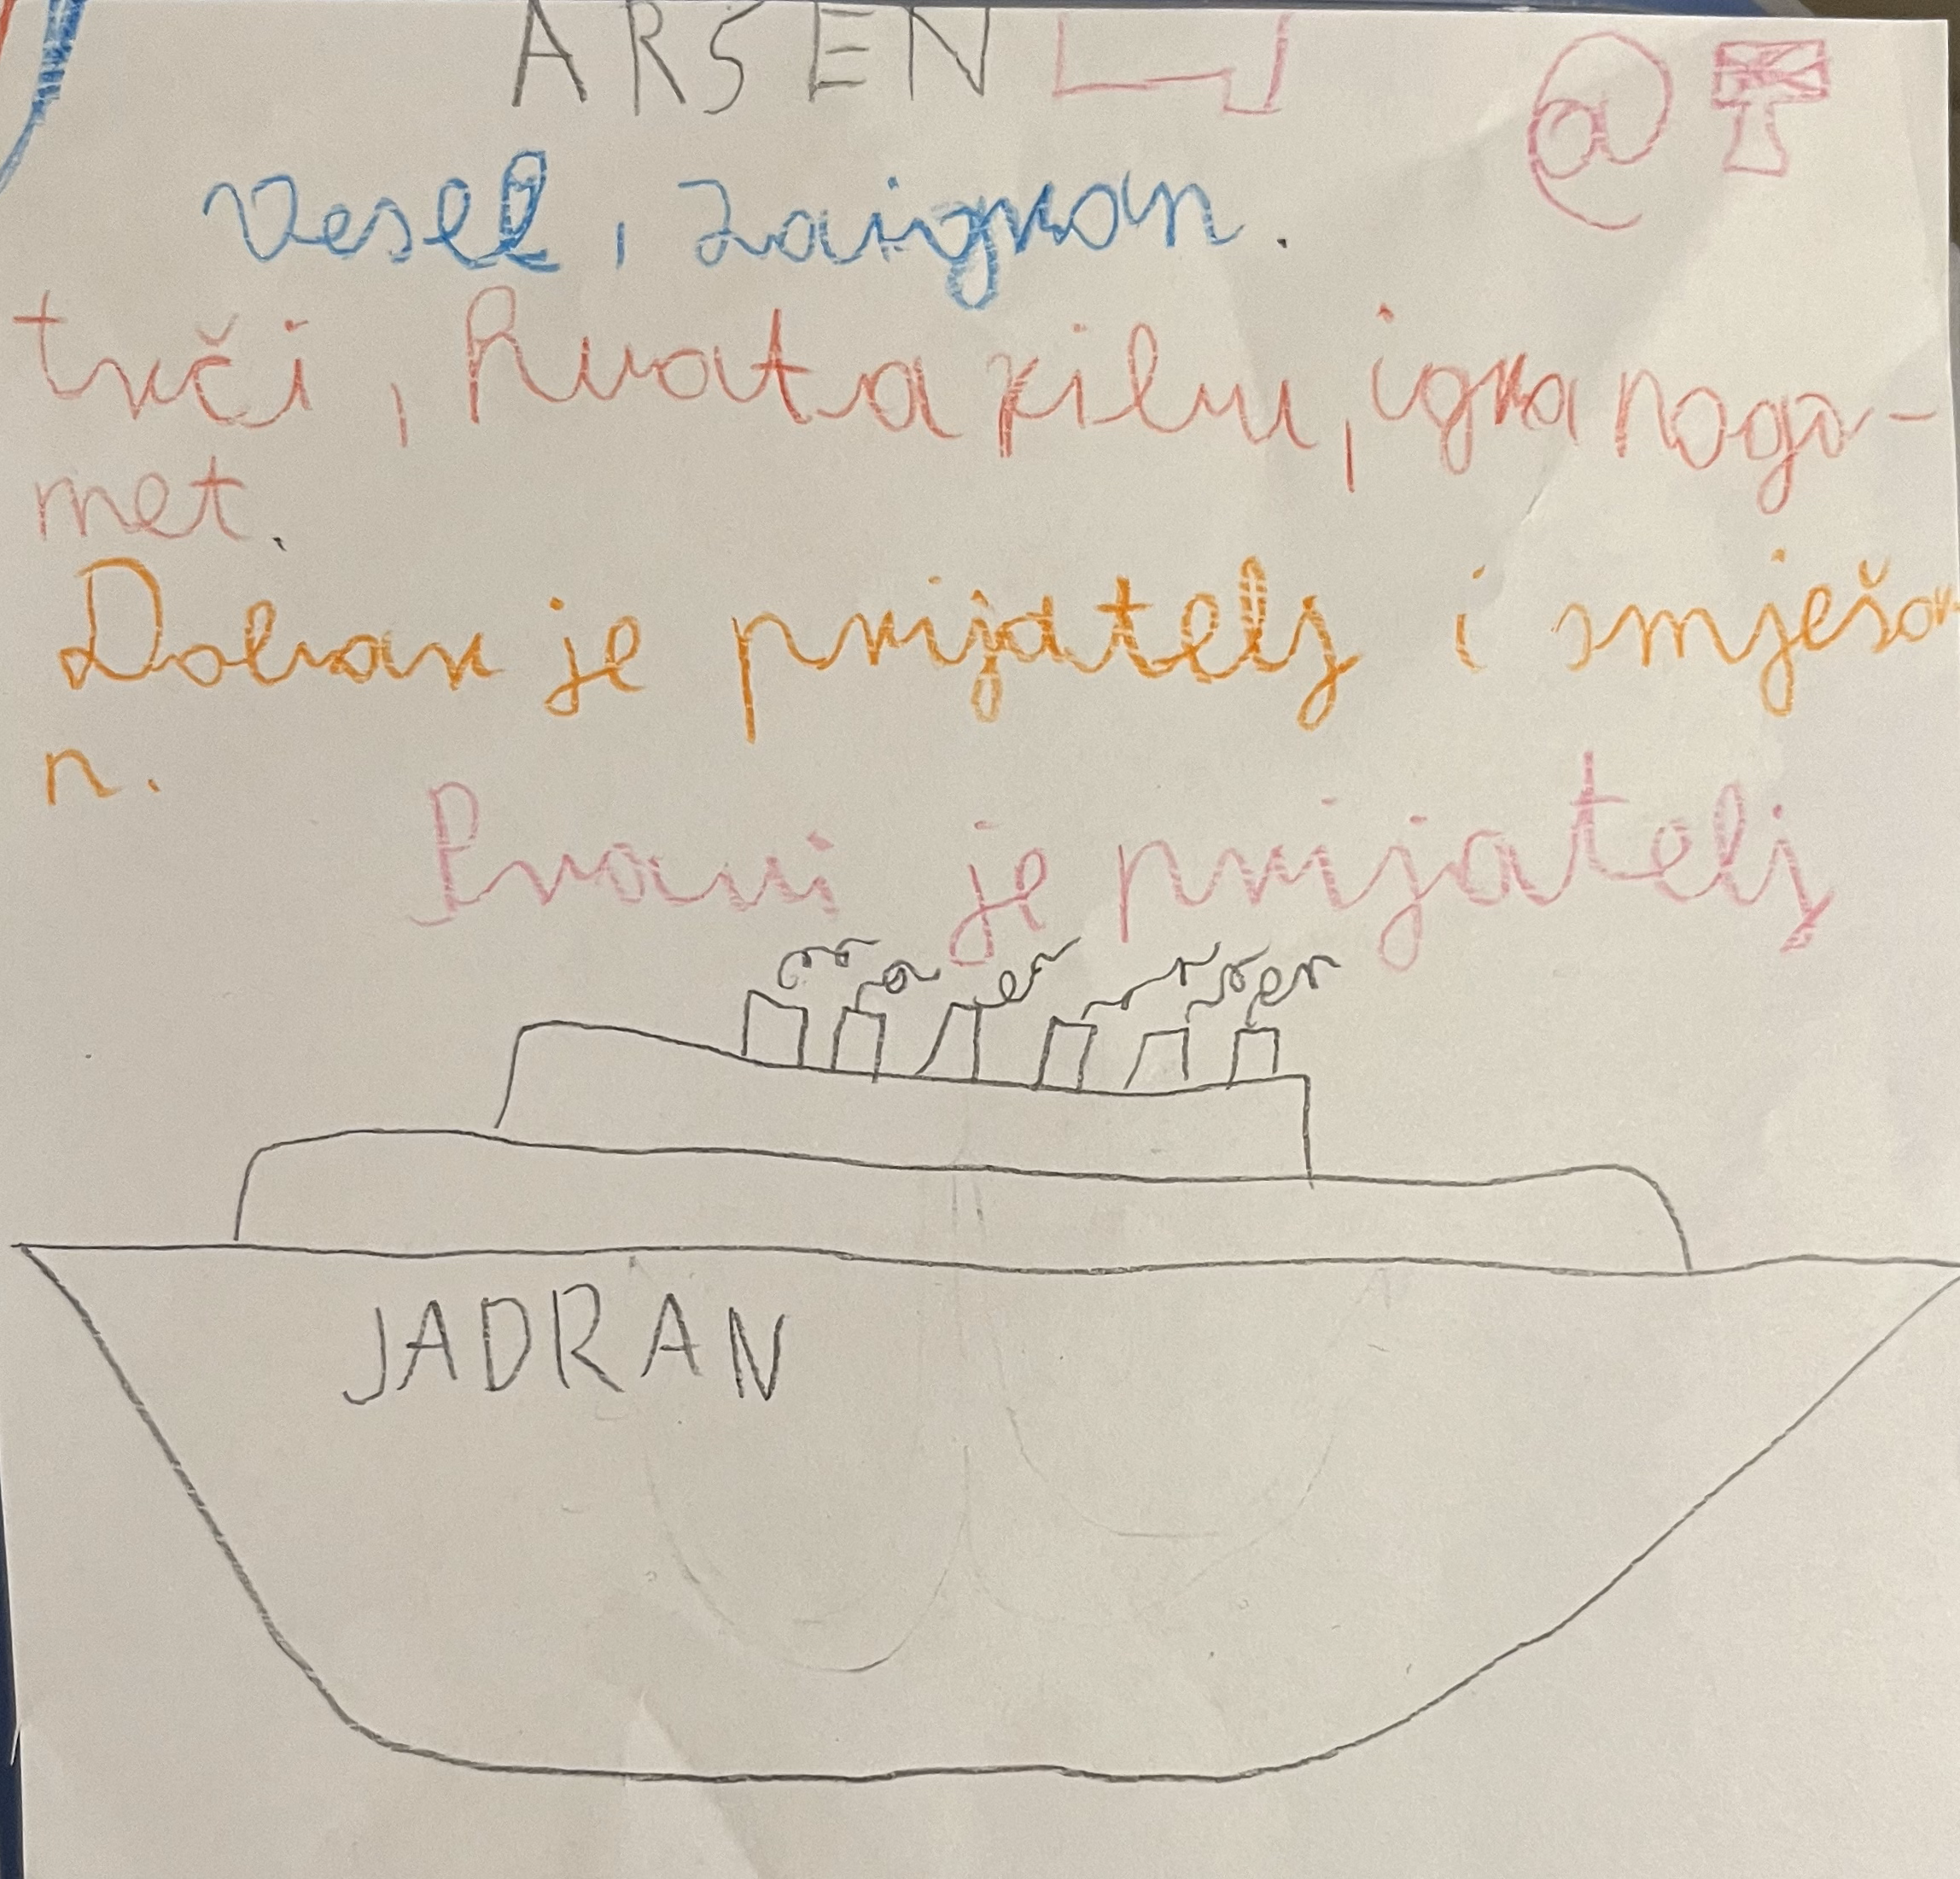 ARSEN
@
Vesel, zaigran.
trči, hvata ribu, igra nogo-
met.
Dobar je prijatelj i smješa
n.
Pravi je prijatelj
JADRAN